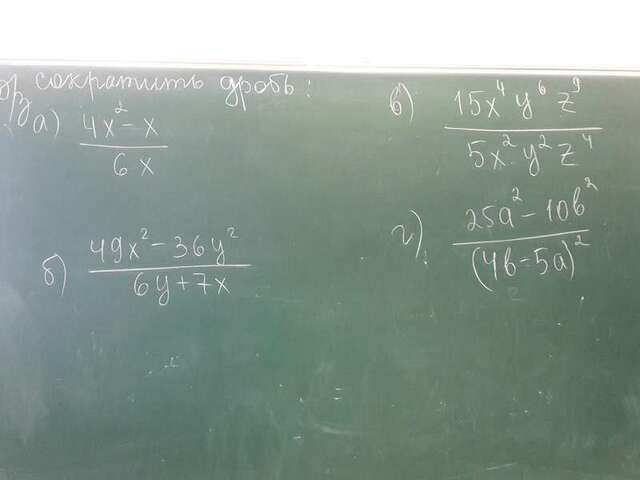 д/з сократить дробь:
а) (4x² - x)/(6x)
б) (49x² - 36y²)/(6y + 7x)
в) (15x⁴y⁶z⁹)/(5x²·y²z⁴)
г) (25a² - 10b²)/(4b - 5a)²